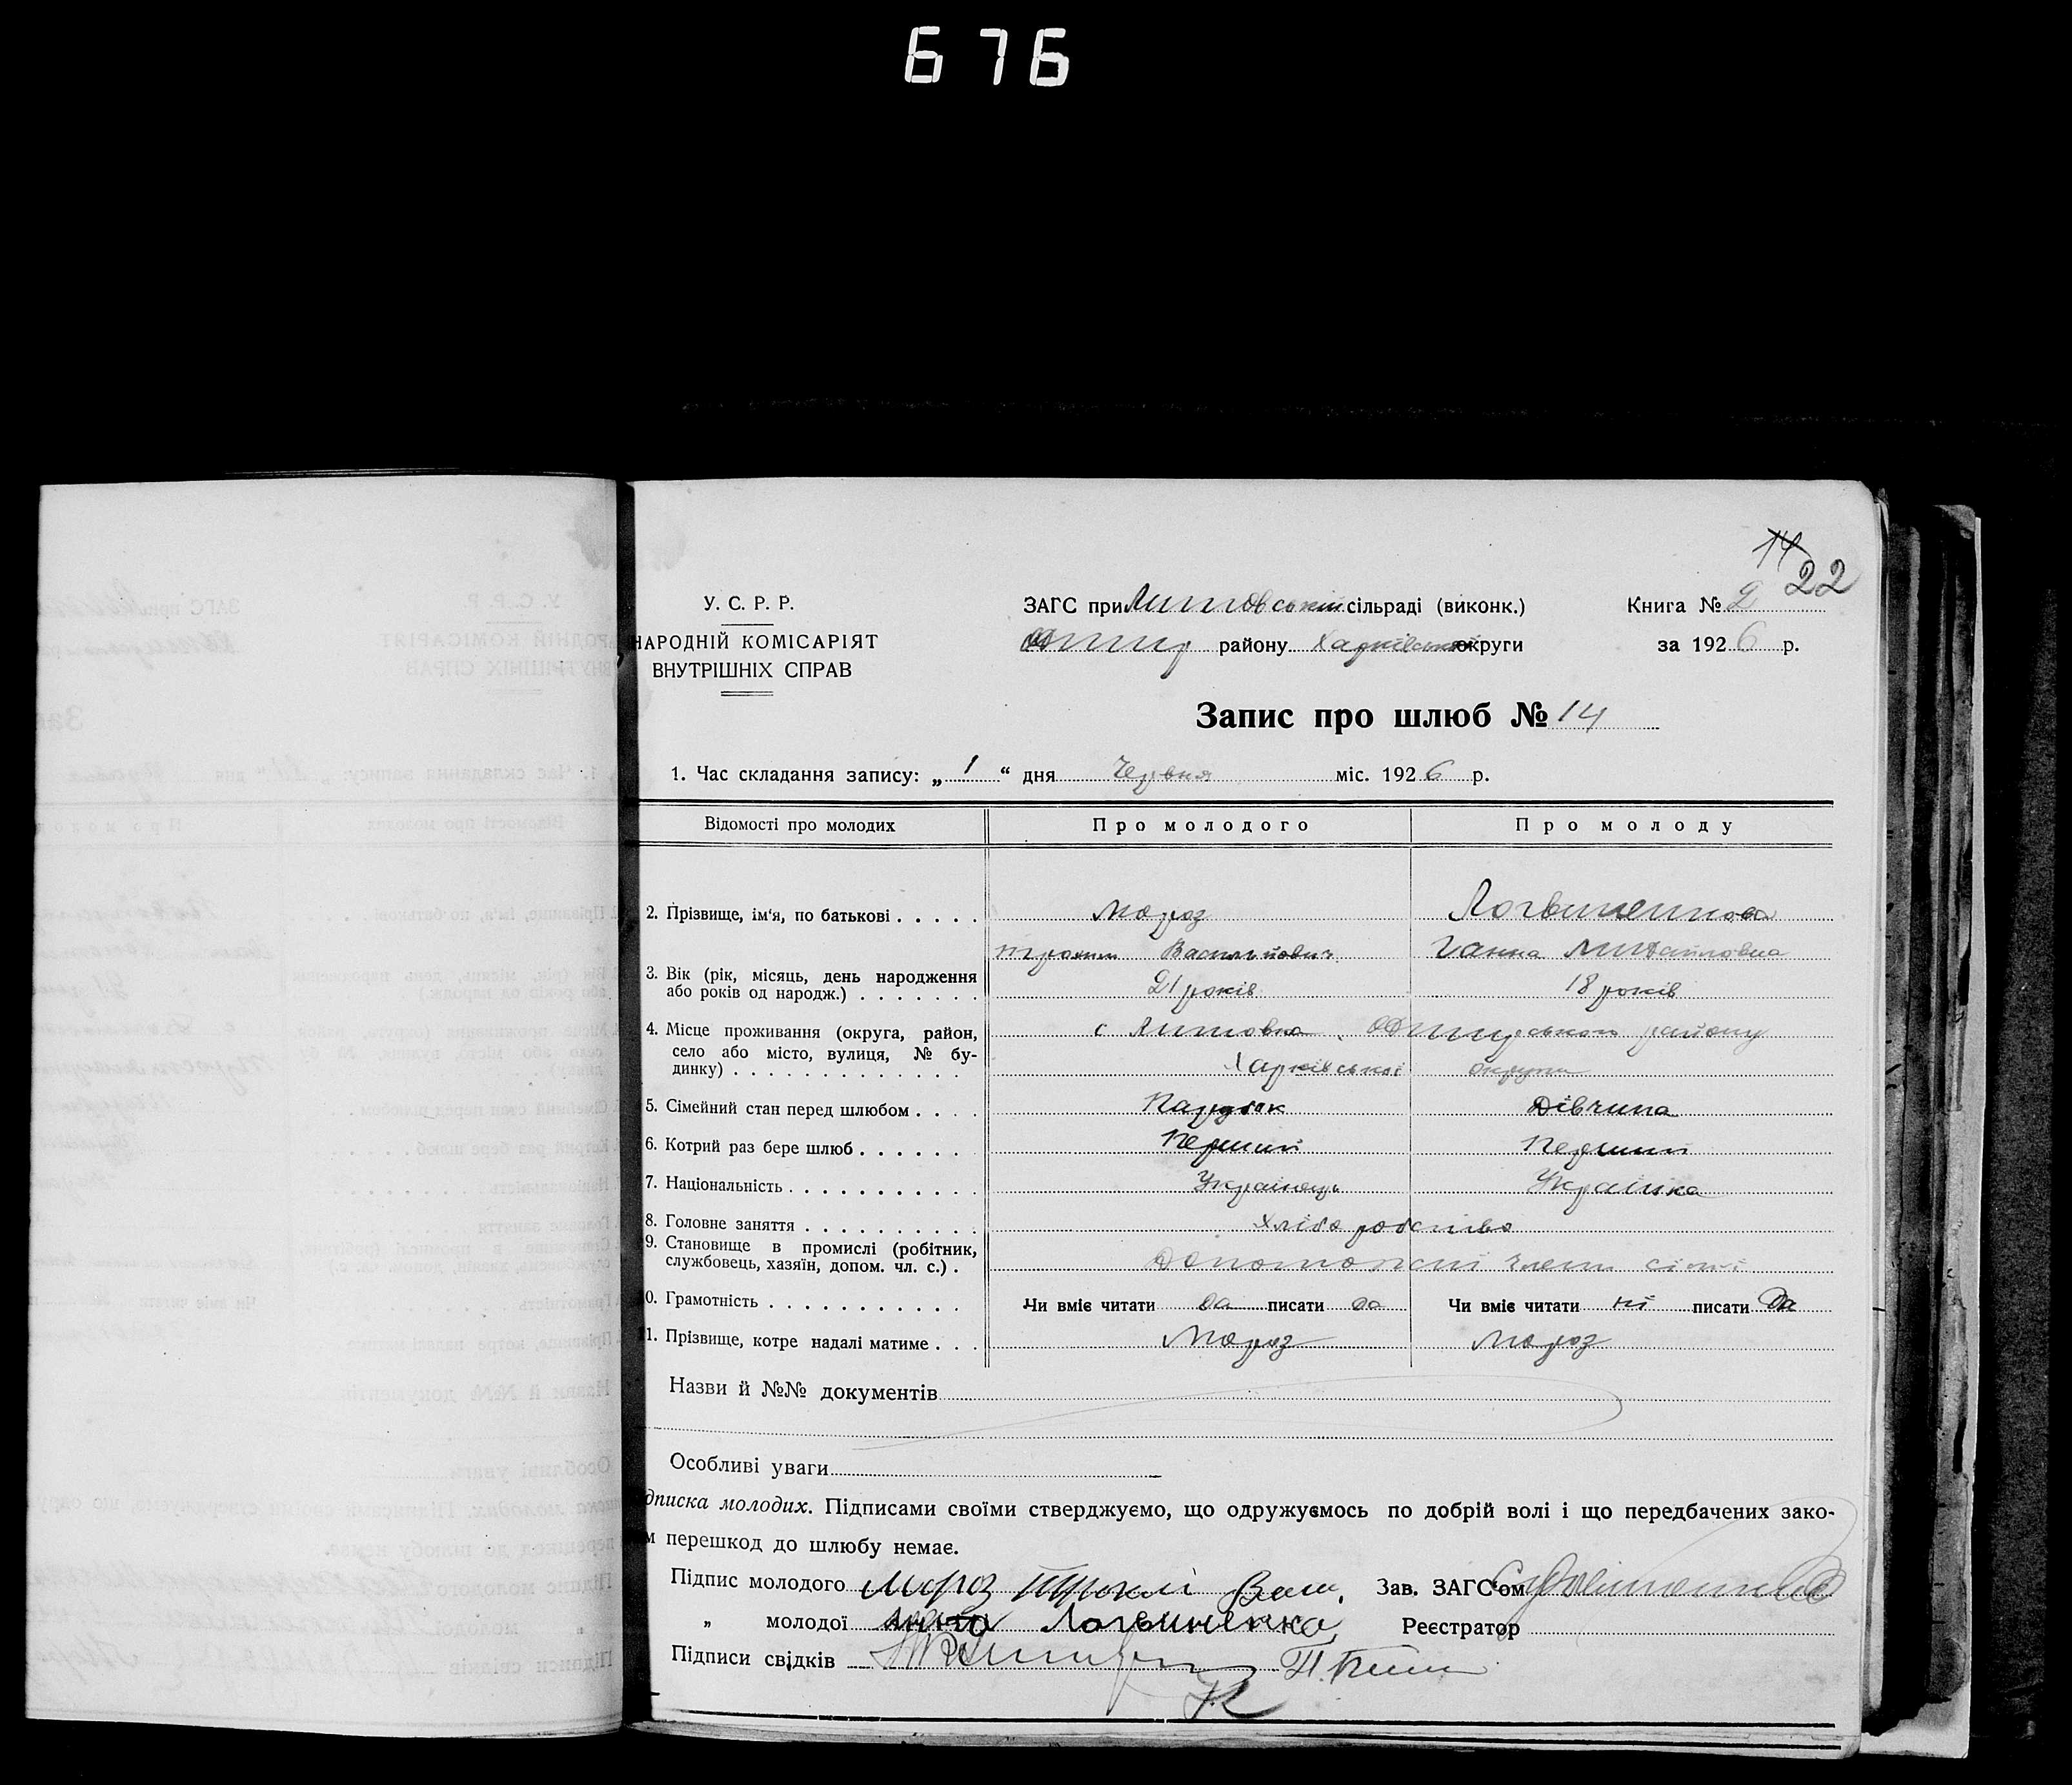 676
14
22
У. С. Р. Р.
НАРОДНІЙ КОМІСАРІЯТ
ВНУТРІШНІХ СПРАВ
ЗАГС при Литовській сільраді (виконк.)
району Харківської округи
Книга № 2
за 1926 р.
Запис про шлюб № 14
1. Час складання запису: „ 1 “ дня Червня міс. 1926 р.
Відомості про молодих Про молодого Про молоду
2. Прізвище, ім'я, по батькові . . . . . Мороз Логвиненкова
Трохим Васильйович Ганна Михайловна
3. Вік (рік, місяць, день народження
або років од народж.) . . . . . . . 21 років 18 років
4. Місце проживання (округа, район, с Литовка району
село або місто, вулиця, № бу-
динку) . . . . . . . . . . . . . Харківської округи
5. Сімейний стан перед шлюбом . . . . Парубок Дівчина
6. Котрий раз бере шлюб . . . . . . Перший Перший
7. Національність . . . . . . . . . . . Українець Українка
8. Головне заняття . . . . . . . . . . Хліборобство
9. Становище в промислі (робітник,
службовець, хазяїн, допом. чл. с.) . Допоможні члени сім'ї
0. Грамотність . . . . . . . . . . . Чи вміє читати да писати да Чи вміє читати ні писати да
1. Прізвище, котре надалі матиме . . . Мороз Мороз
Назви й №№ документів
Особливі уваги
дписка молодих. Підписами своїми стверджуємо, що одружуємось по добрій волі і що передбачених зако-
м перешкод до шлюбу немає.
Підпис молодого Мороз Васи. Зав. ЗАГС'ом
„ молодої Логвиненко Реєстратор
Підписи свідків П.